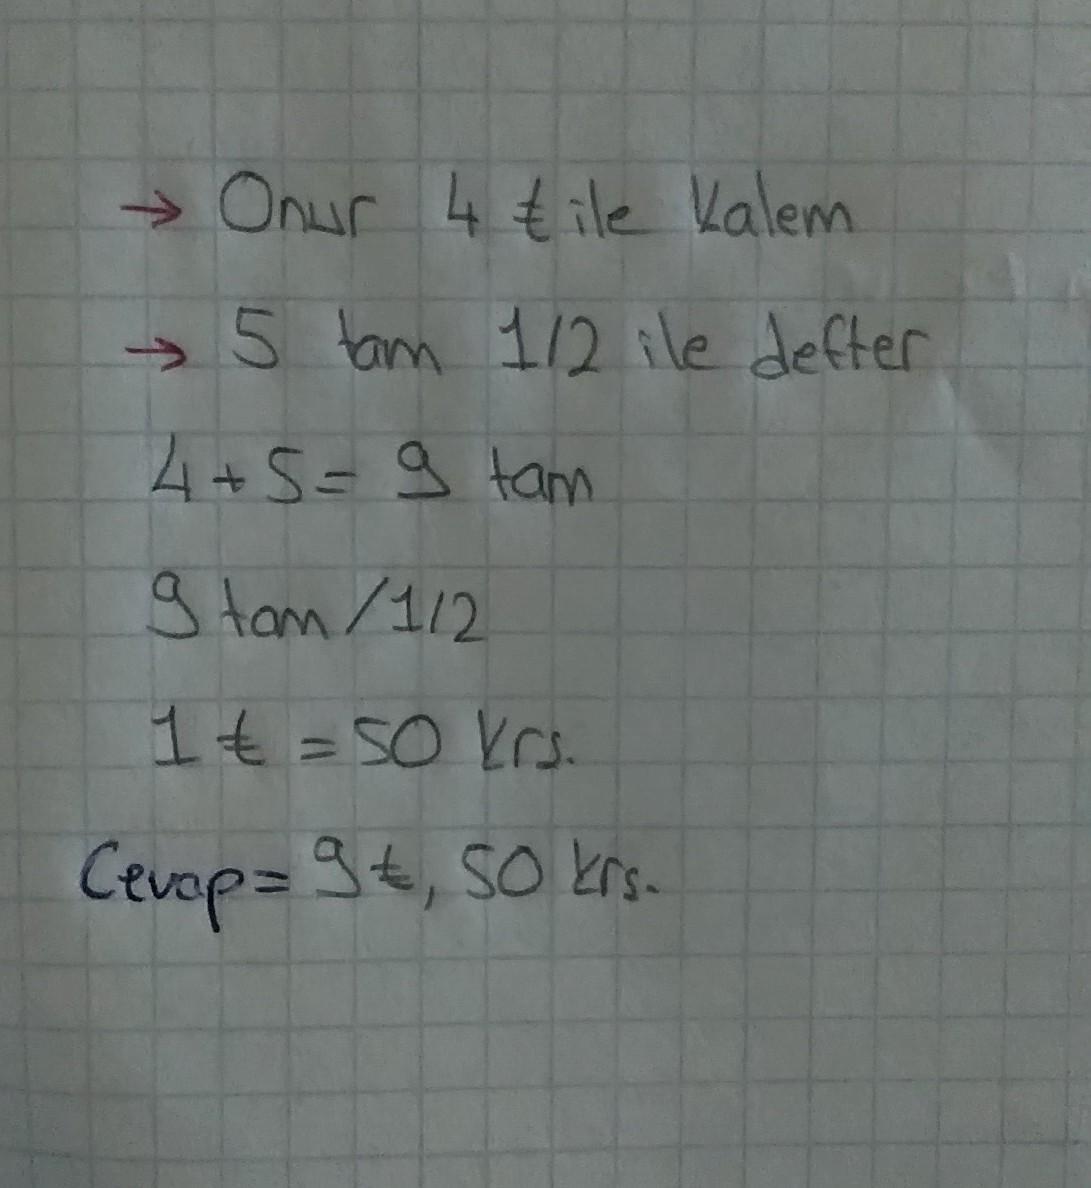 → Onur 4 ₺ ile kalem
→ 5 tam 1/2 ile defter
4+5= 9 tam
9 tam /1/2
1 ₺ = 50 krs.
Cevap= 9₺, 50 krs.